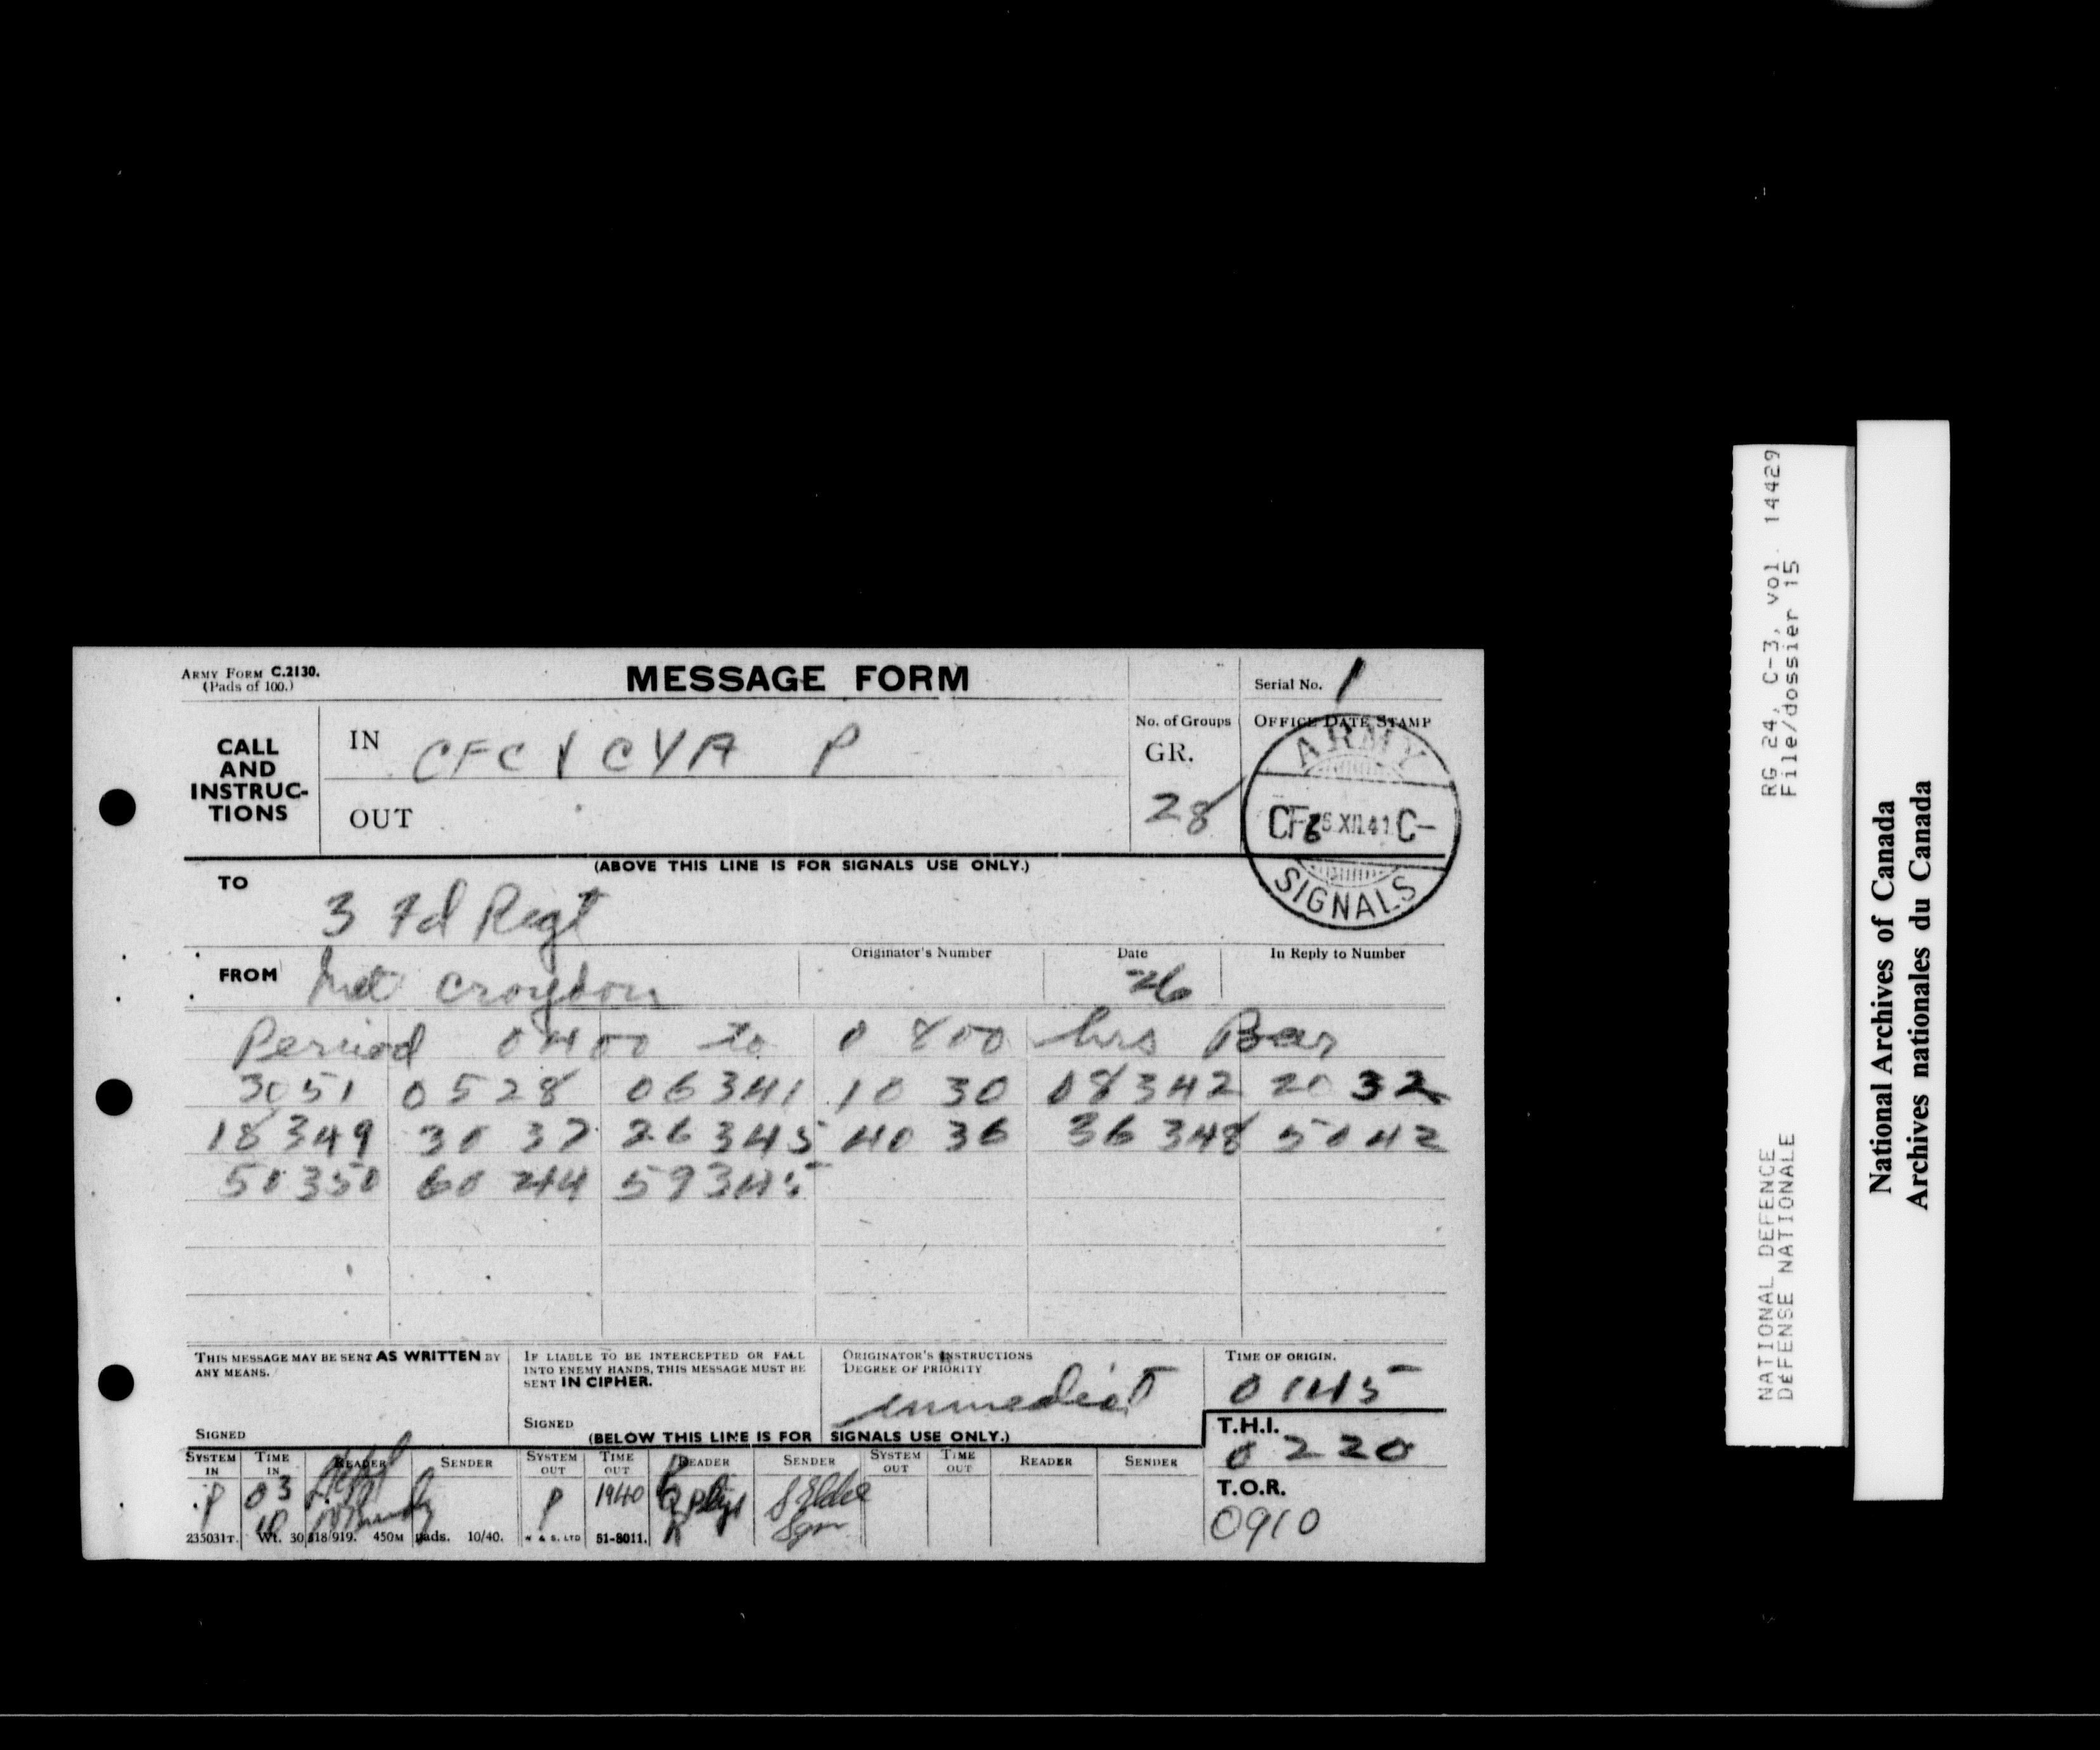 ARMY FORM C.2130.
(Pads of 100.)
MESSAGE FORM
Serial No. 1
CALL AND INSTRUC-TIONS
IN CFC V CYA P
OUT
No. of Groups
GR.
28
OFFICE DATE STAMP
ARMY
CFC 6 XII.41 C-
SIGNALS
(ABOVE THIS LINE IS FOR SIGNALS USE ONLY.)
TO
3 Fd Regt
FROM Met Croydon
Originator's Number
Date
26
In Reply to Number
Period 0400 to 0800 hrs Bar
3051 0528 06341 10 30 08342 20 32
18349 30 37 26345 40 36 36348 5042
50350 60 44 59345
THIS MESSAGE MAY BE SENT AS WRITTEN BY ANY MEANS.
SIGNED
IF LIABLE TO BE INTERCEPTED OR FALL INTO ENEMY HANDS, THIS MESSAGE MUST BE SENT IN CIPHER.
SIGNED
ORIGINATOR'S INSTRUCTIONS
DEGREE OF PRIORITY
immediat
TIME OF ORIGIN.
0145
(BELOW THIS LINE IS FOR SIGNALS USE ONLY.)
T.H.I.
0220
T.O.R.
0910
SYSTEM IN TIME IN READER SENDER SYSTEM OUT TIME OUT READER SENDER SYSTEM OUT TIME OUT READER SENDER
P 03 10 P 1940
235031T. Wt. 30318/919. 450M pads. 10/40. W & S. LTD 51-8011.
RG 24, C-3, vol. 14429
File/dossier 15
NATIONAL DEFENCE
DÉFENSE NATIONALE
National Archives of Canada
Archives nationales du Canada